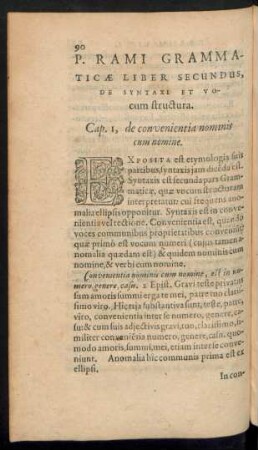 90
P. RAMI GRAMMA-
TICÆ LIBER SECUNDUS,
DE SYNTAXI ET VO-
cum structura.
Cap. 1, de convenientia nominis
cum nomine.
EXPOSITA est etymologia suis
partibus, syntaxis jam ducenda est.
Syntaxis est secunda pars Gram-
maticæ, quæ vocum structuram
interpretatur: cui frequens ano-
malia ellipsi opponitur. Syntaxis est in conve-
nientia vel rectione. Convenientia est, quando
voces communibus proprietatibus conveniunt
quæ primò est vocum numeri (cujus tamen a-
nomalia quædam est) & quidem nominis cum
nomine, & verbi cum nomine.
Convenientia nominis cum nomine, est in nu-
mero, genere, casu. 2 Epist. Gravi teste privatus
sum amoris summi erga te mei, patre tuo claris-
simo viro. Hic tria substantiva sunt, teste, patre,
viro, convenientia inter se numero, genere, ca-
su: & cum suis adjectivis gravi, tuo, clarissimo, si-
militer convenientia numero, genere, casu: quo-
modo amoris, summi, mei, etiam inter se conve-
niunt. Anomalia hic communis prima est ex
ellipsi.
In con-